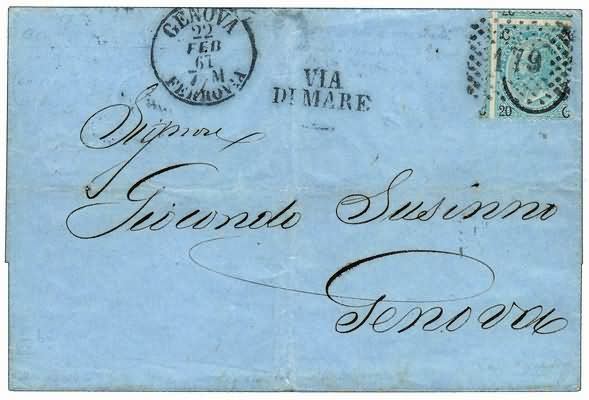 GENOVA
22
FEB
67
7 M
FERROVIA
VIA
DI MARE
179
20 C
Signore
Giocondo Susinno
Genova